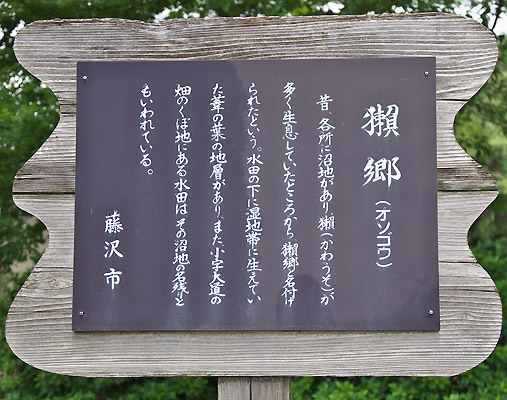 獺郷(オソゴウ)
昔、各所に沼地があり、獺(かわうそ)が
多く生息していたところから獺郷と名付け
られたという。水田の下に湿地帯に生えてい
た葦の葉の地層があり、また、小字大道の
畑のくぼ地にある水田は、その沼地の名残りと
もいわれている。
藤沢市